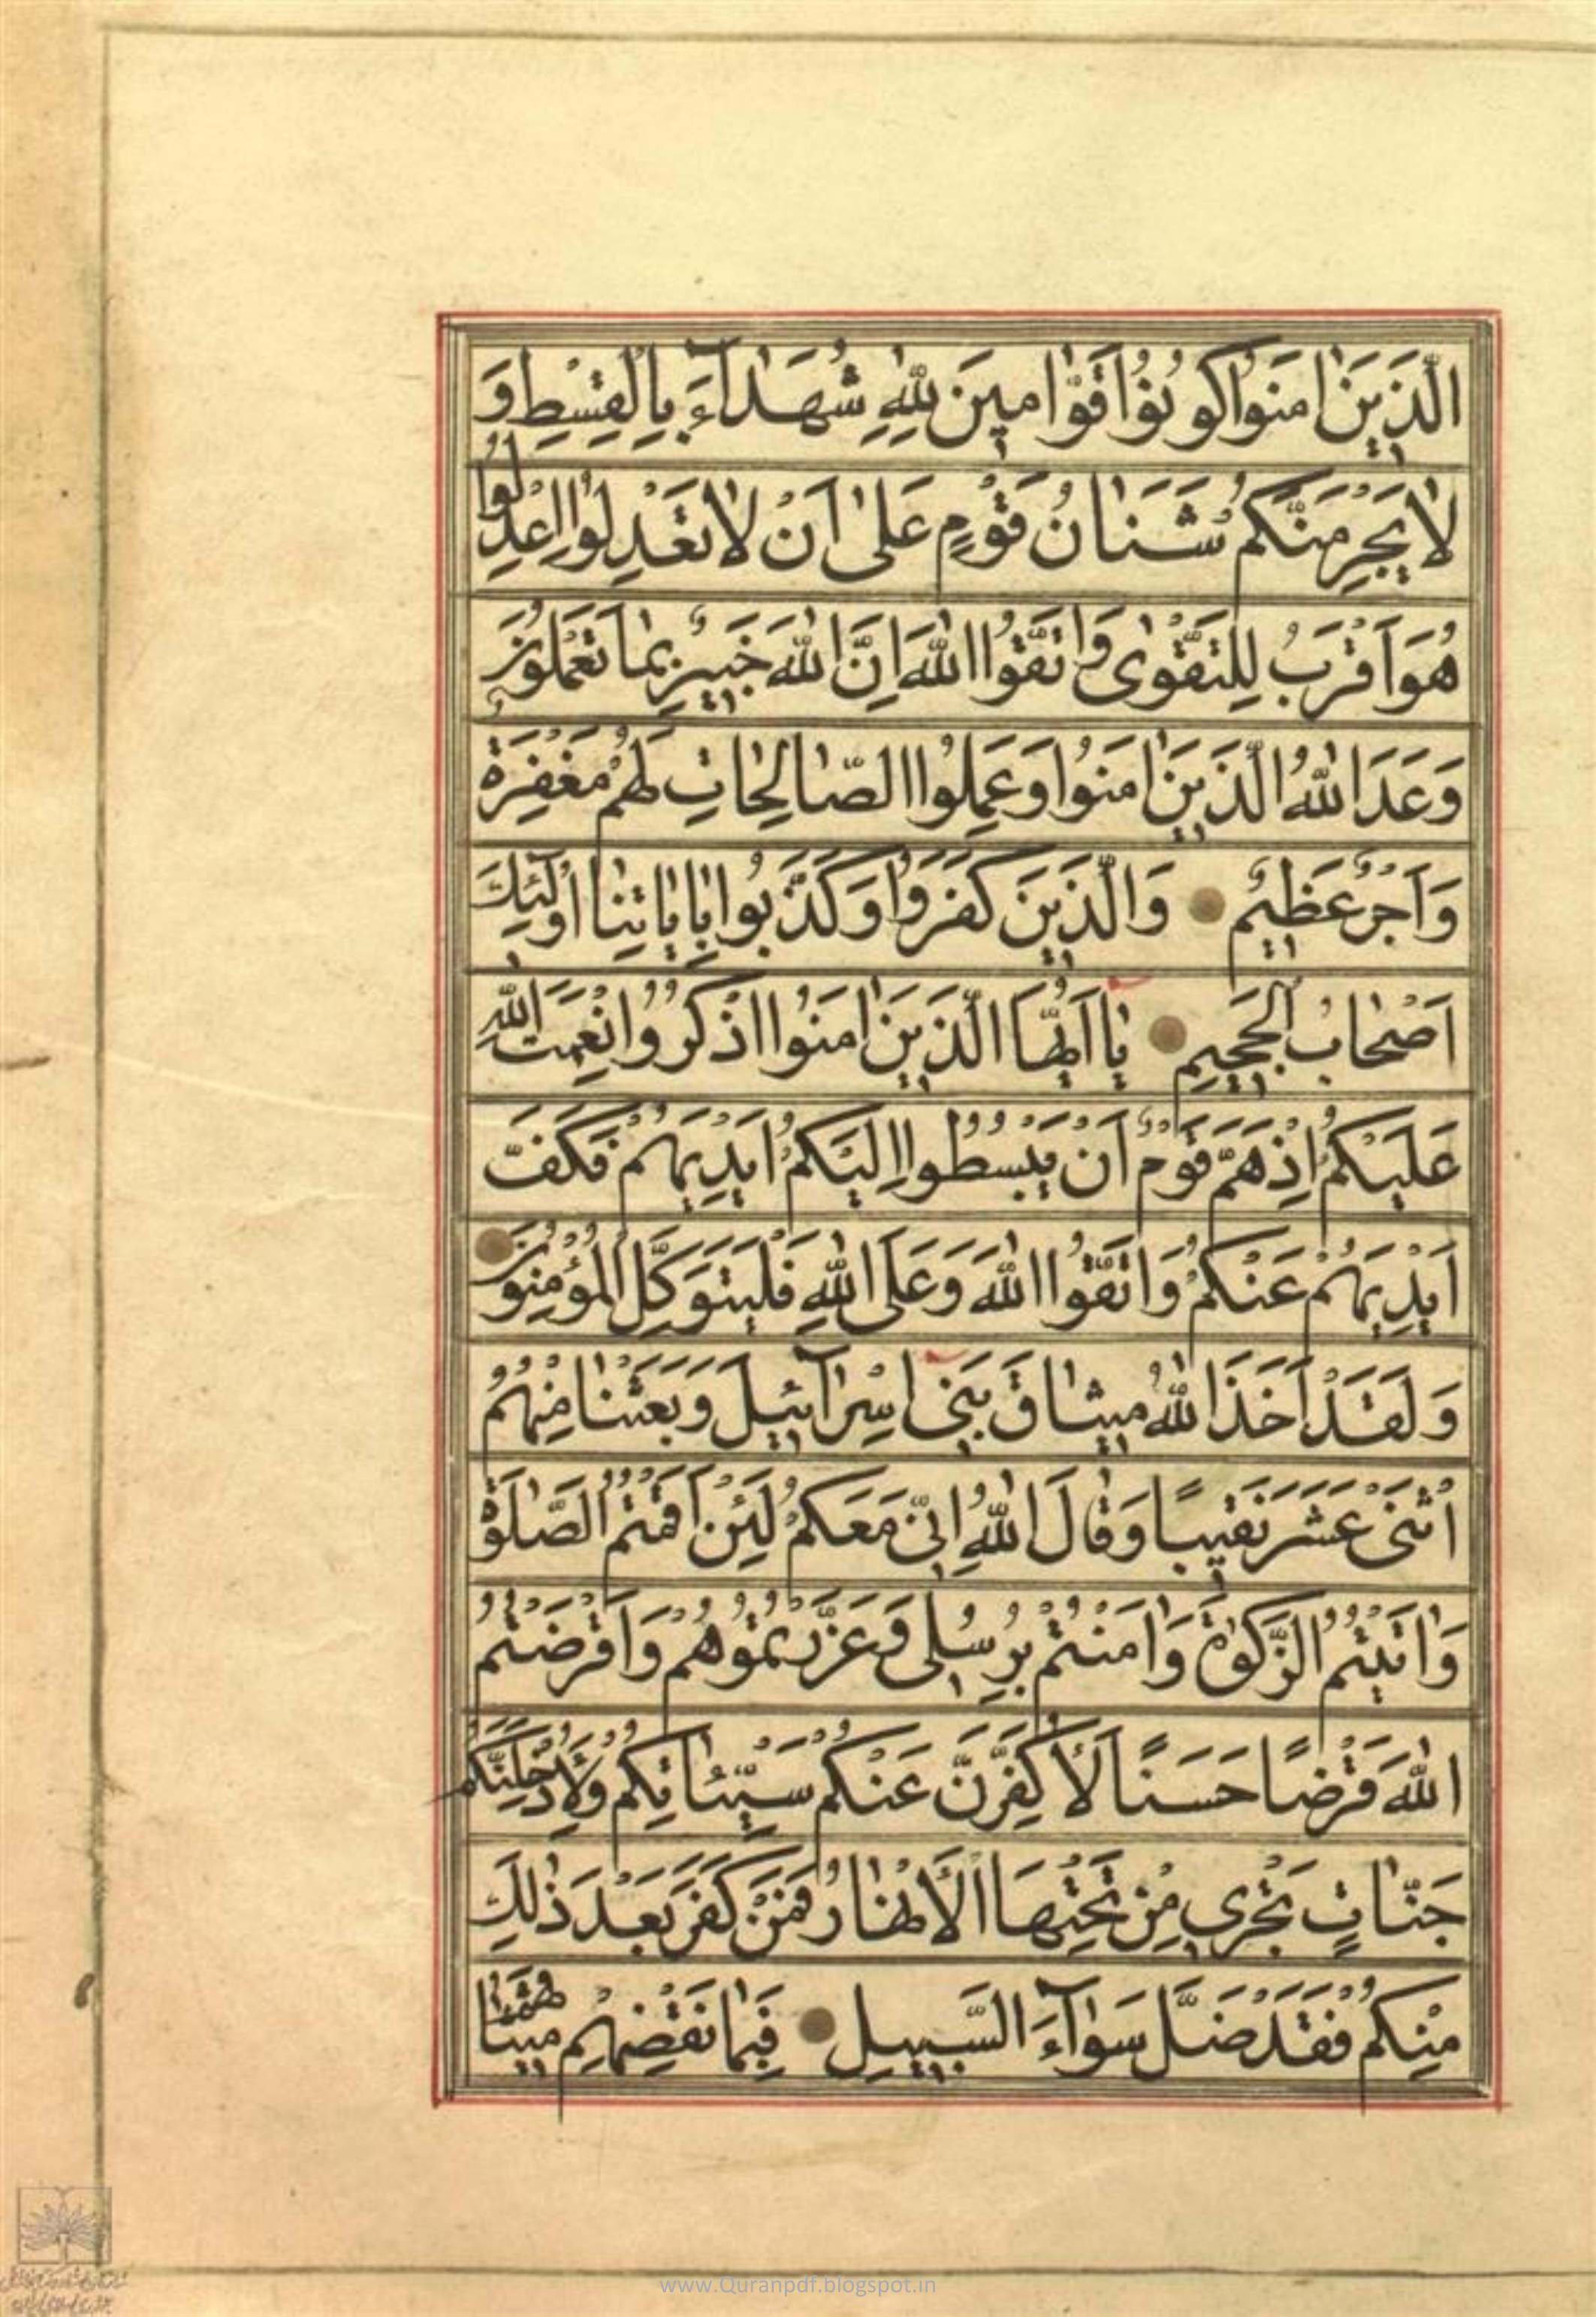 الَّذِينَ اٰمَنُوا كُونُوا قَوّٰامِينَ لِلّٰهِ شُهَدٰآءَ بِالْقِسْطِ وَ
لاٰ يَجْرِمَنَّكُمْ شَنَاٰنُ قَوْمٍ عَلىٰ اَنْ لاٰ تَعْدِلُوا اِعْدِلُوا
هُوَ اَقْرَبُ لِلتَّقْوىٰ وَاتَّقُوا اللّٰهَ اِنَّ اللّٰهَ خَبِيرٌ بِمٰا تَعْمَلُونَ
وَعَدَ اللّٰهُ الَّذِينَ اٰمَنُوا وَعَمِلُوا الصّٰالِحٰاتِ لَهُمْ مَغْفِرَةٌ
وَاَجْرٌ عَظِيمٌ وَالَّذِينَ كَفَرُوا وَكَذَّبُوا بِاٰيٰاتِنٰا اُولٰٓئِكَ
اَصْحٰابُ الْجَحِيمِ يٰا اَيُّهَا الَّذِينَ اٰمَنُوا اذْكُرُوا نِعْمَتَ اللّٰهِ
عَلَيْكُمْ اِذْ هَمَّ قَوْمٌ اَنْ يَبْسُطُوا اِلَيْكُمْ اَيْدِيَهُمْ فَكَفَّ
اَيْدِيَهُمْ عَنْكُمْ وَاتَّقُوا اللّٰهَ وَعَلَى اللّٰهِ فَلْيَتَوَكَّلِ الْمُؤْمِنُونَ
وَلَقَدْ اَخَذَ اللّٰهُ مِيثٰاقَ بَنِي اِسْرٰآئِيلَ وَبَعَثْنٰا مِنْهُمُ
اثْنَىْ عَشَرَ نَقِيبًا وَقٰالَ اللّٰهُ اِنِّي مَعَكُمْ لَئِنْ اَقَمْتُمُ الصَّلٰوةَ
وَاٰتَيْتُمُ الزَّكٰوةَ وَاٰمَنْتُمْ بِرُسُلِي وَعَزَّرْتُمُوهُمْ وَاَقْرَضْتُمُ
اللّٰهَ قَرْضًا حَسَنًا لَاُكَفِّرَنَّ عَنْكُمْ سَيِّئٰاتِكُمْ وَلَاُدْخِلَنَّكُمْ
جَنّٰاتٍ تَجْرِي مِنْ تَحْتِهَا الْاَنْهٰارُ فَمَنْ كَفَرَ بَعْدَ ذٰلِكَ
مِنْكُمْ فَقَدْ ضَلَّ سَوٰآءَ السَّبِيلِ فَبِمٰا نَقْضِهِمْ مِيثٰاقَهُمْ
www.Quranpdf.blogspot.in